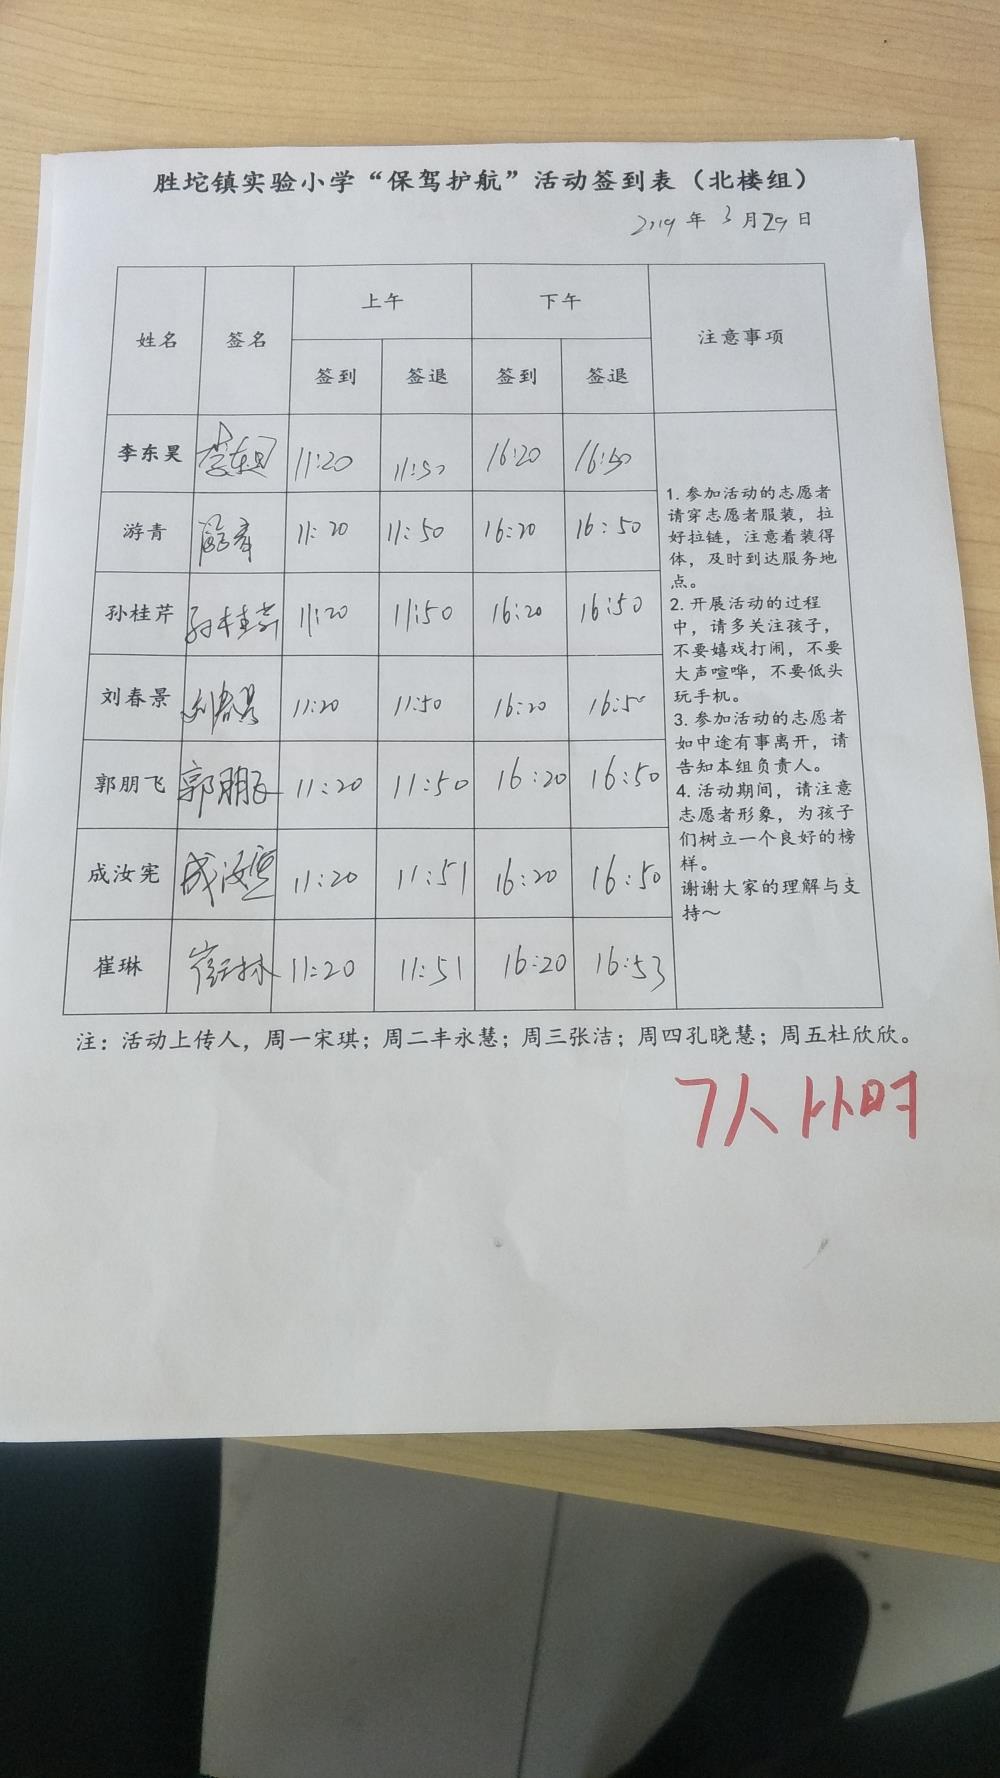 胜坨镇实验小学“保驾护航”活动签到表（北楼组）
2019 年 3 月 29 日
姓名 签名 上午 下午 注意事项
签到 签退 签到 签退
李东昊 李东昊 11:20 11:50 16:20 16:50
游青 游青 11:20 11:50 16:20 16:50
孙桂芹 孙桂芹 11:20 11:50 16:20 16:50
刘春景 刘春景 11:20 11:50 16:20 16:50
郭朋飞 郭朋飞 11:20 11:50 16:20 16:50
成汝宪 成汝宪 11:20 11:51 16:20 16:50
崔琳 崔琳 11:20 11:51 16:20 16:53
1. 参加活动的志愿者
请穿志愿者服装，拉
好拉链，注意着装得
体，及时到达服务地
点。
2. 开展活动的过程
中，请多关注孩子，
不要嬉戏打闹，不要
大声喧哗，不要低头
玩手机。
3. 参加活动的志愿者
如中途有事离开，请
告知本组负责人。
4. 活动期间，请注意
志愿者形象，为孩子
们树立一个良好的榜
样。
谢谢大家的理解与支
持～
注：活动上传人，周一宋琪；周二丰永慧；周三张洁；周四孔晓慧；周五杜欣欣。
7人 1小时